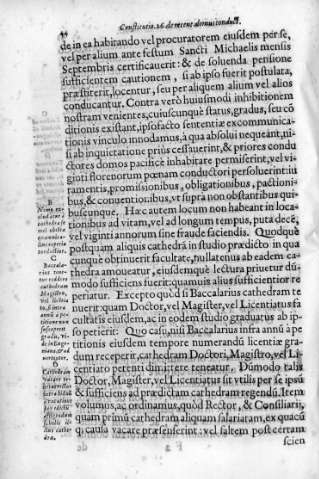 Constitutio. 26. de recenter domus conduct.
de in ea habitando vel procuratorem eiusdem per se,
vel per alium ante festum Sancti Michaelis mensis
Septembris certificauerit: & de soluenda pensione
sufficientem cautionem, si ab ipso fuerit postulata,
præstiterit, locentur, seu per aliquem alium vel alios
conducantur. Contra verò huiusmodi inhibitionem
nostram venientes, cuiuscunquè status, gradus, seu cõ
ditionis existant, ipso facto sententiæ excommunica-
tionis vinculo innodamus, à qua absolui nequeant, ni-
si ab inquietatione priùs cessauerint, & priores condu
ctores domos pacificè inhabitare permiserint, vel vi-
ginti florenorum pœnam conductori persoluerint: iu
ramentis, promissionibus, obligationibus, pactioni-
bus, & conuentionibus, vt supra non obstantibus qui-
buscunque. Hæc autem locum non habeant in loca-
tionibus ad vitam, vel ad longum tempus, puta decẽ,
vel viginti annorum sine fraude faciendis. Quodquè
postquam aliquis cathedrã in studio prædicto in qua
cunquè obtinuerit facultate, nullatenus ab eadem ca-
thedra amoueatur, eiusdemquè lectura priuetur dũ-
modo sufficiens fuerit: quamuis alius sufficientior re
periatur. Excepto quòd si Baccalarius cathedram te
nuerit quam Doctor, vel Magister, vel Licentiatus fa
cultatis eiusdem, ac in eodem studio graduatus ab ip-
so petierit: Quo casu, nisi Baccalarius infra annũ à pe
titionis eiusdem tempore numerandũ licentiæ gra-
dum receperit, cathedram Doctori, Magistro, vel Li-
centiato petenti dimittere teneatur. Dũmodo talis
Doctor, Magister, vel Licentiatus sit vtilis per se ipsũ
& sufficiens ad prædictam cathedram regendũ. Item
volumus, ac ordinamus, quòd Rector, & Consiliarij,
quam primũ cathedram aliquam salariatam, ex quacũ
q; causa vacare præsenserint: vel saltem post certam
scien
B
C
Baccalarius
cathedram
Magistro,